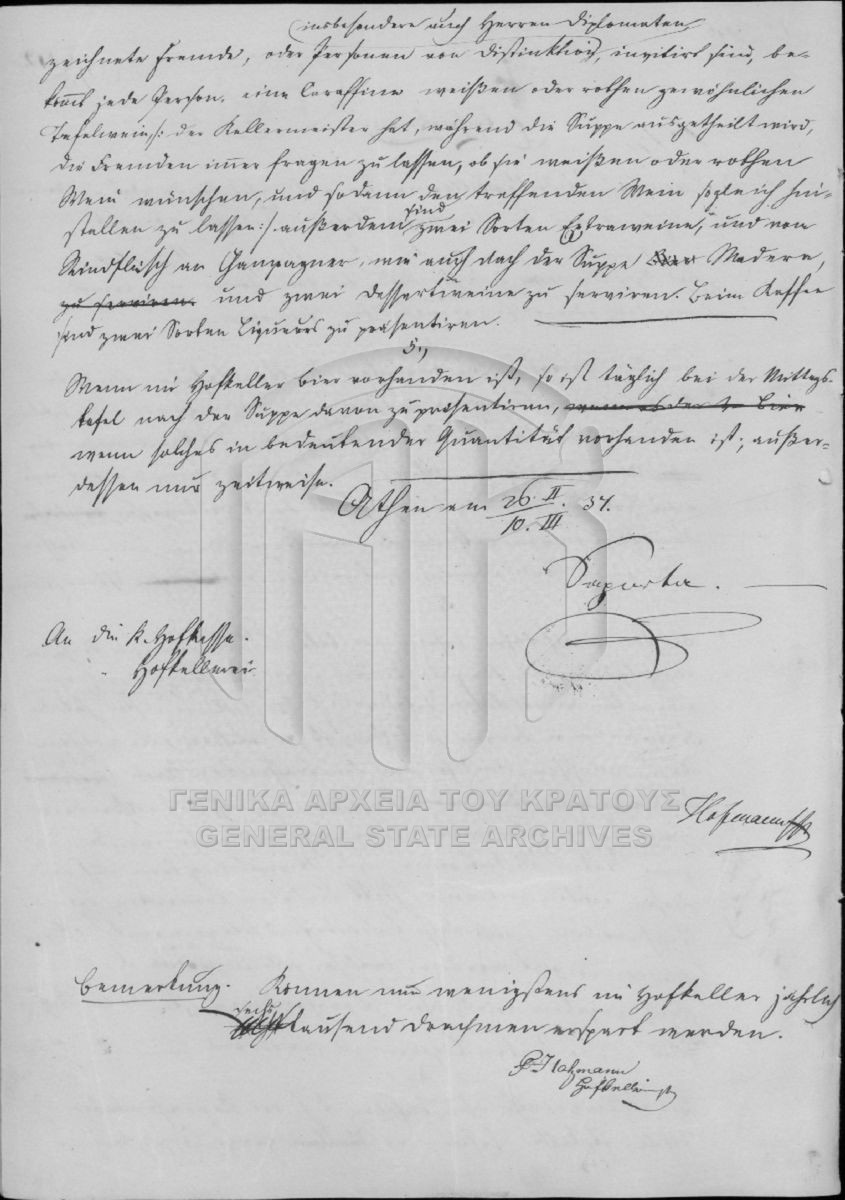 insbesondere auch Herren Diplomaten
zeichnete Fremde, oder Personen von Distinktion, invitirt sind, be-
kömmt jede Person eine Caraffine weißen oder rothen gewöhnlichen
Tafelwein /: der Kellermeister hat, während die Suppe ausgetheilt wird,
die Fremden immer fragen zu lassen, ob sie weißen oder rothen
Wein wünschen, und sodann den treffenden Wein sogleich hin-
stellen zu lassen :/. außerdem sind zwei Sorten Extraweine, und von
Rindfleisch an Campagner, wie auch nach der Suppe Madera,
zu serviren und zwei Dessertweine zu serviren. Beim Kaffee
sind zwei Sorten Liqueurs zu präsentiren.
5.,
Wenn im Hofkeller Bier vorhanden ist, so ist täglich bei der Mittags-
tafel nach der Suppe davon zu präsentiren,
wenn solches in bedeutender Quantität vorhanden ist; außer-
dessen nur zeitweise.
Athen am 26. II / 10. III. 37.
Saporta.
An die K. Hofkasse.
" Hofkellerei
Hofmann
ΓΕΝΙΚΑ ΑΡΧΕΙΑ ΤΟΥ ΚΡΑΤΟΥΣ
GENERAL STATE ARCHIVES
Bemerkung. Können nun wenigstens im Hofkeller jährlich
sechs tausend Drachmen erspart werden.
Hofmann